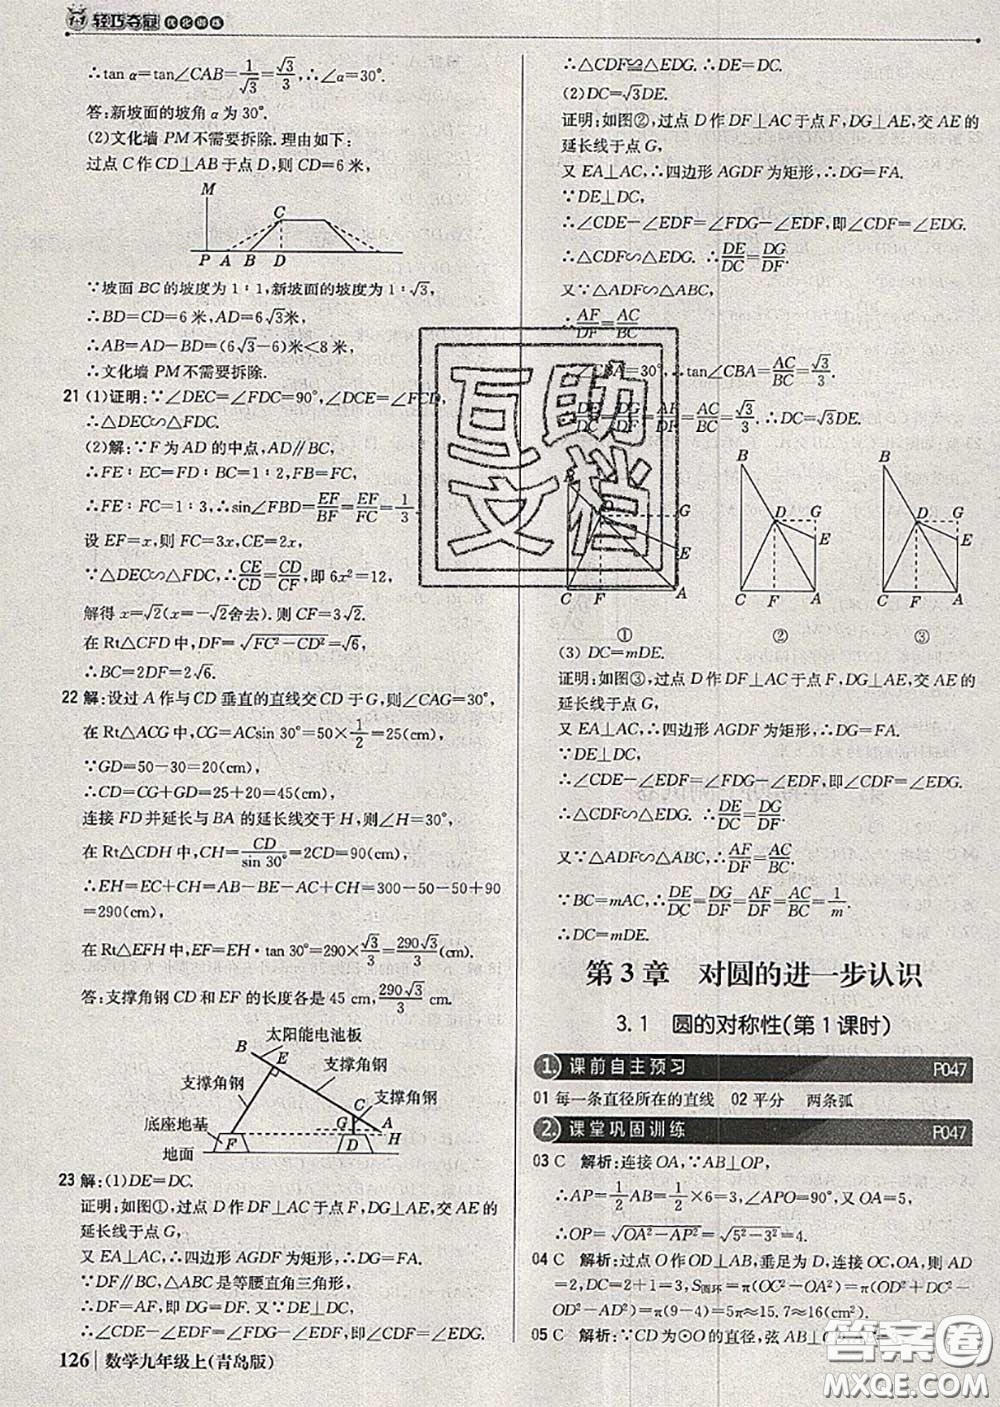 1+1 轻巧夺冠 优化训练
∴tan α=tan∠CAB=1/√3=√3/3,∴∠α=30°.
答:新坡面的坡角 α 为 30°.
(2)文化墙 PM 不需要拆除.理由如下:
过点 C 作 CD⊥AB 于点 D,则 CD=6 米,
M
C
P A B D
∵坡面 BC 的坡度为 1∶1,新坡面的坡度为 1∶√3,
∴BD=CD=6 米,AD=6√3米,
∴AB=AD-BD=(6√3-6)米<8 米,
∴文化墙 PM 不需要拆除.
21 (1)证明:∵∠DEC=∠FDC=90°,∠DCE=∠FCD,
∴△DEC∽△FDC.
(2)解:∵F 为 AD 的中点,AD∥BC,
∴FE∶EC=FD∶BC=1∶2,FB=FC,
∴FE∶FC=1∶3,∴sin∠FBD=EF/BF=EF/FC=1/3.
设 EF=x,则 FC=3x,CE=2x,
∵△DEC∽△FDC,∴CE/CD=CD/CF,即 6x²=12,
解得 x=√2(x=-√2舍去).则 CF=3√2.
在 Rt△CFD 中,DF=√(FC²-CD²)=√6,
∴BC=2DF=2√6.
22 解:设过 A 作与 CD 垂直的直线交 CD 于 G,则∠CAG=30°,
在 Rt△ACG 中,CG=ACsin 30°=50×1/2=25(cm),
∵GD=50-30=20(cm),
∴CD=CG+GD=25+20=45(cm),
连接 FD 并延长与 BA 的延长线交于 H,则∠H=30°,
在 Rt△CDH 中,CH=CD/sin 30°=2CD=90(cm),
∴EH=EC+CH=AB-BE-AC+CH=300-50-50+90
=290(cm),
在 Rt△EFH 中,EF=EH·tan 30°=290×√3/3=290√3/3(cm).
答:支撑角钢 CD 和 EF 的长度各是 45 cm,290√3/3 cm.
太阳能电池板
B E
支撑角钢
支撑角钢
C
底座地基
G A
F D H
地面
23 解:(1)DE=DC.
证明:如图①,过点 D 作 DF⊥AC 于点 F,DG⊥AE,交 AE 的
延长线于点 G,
又 EA⊥AC,∴四边形 AGDF 为矩形,∴DG=FA.
∵DF∥BC,∴△ADF 是等腰直角三角形,
∴DF=AF,即 DG=DF.又∵DE⊥DC,
∴∠CDE-∠EDF=∠FDG-∠EDF,即∠CDF=∠EDG,
126 数学九年级上(青岛版)
∴△CDF≌△EDG.∴DE=DC.
(2)DC=√3DE.
证明:如图②,过点 D 作 DF⊥AC 于点 F,DG⊥AE,交 AE 的
延长线于点 G,
又 EA⊥AC,∴四边形 AGDF 为矩形,∴DG=FA.
∵DE⊥DC,
∴∠CDE-∠EDF=∠FDG-∠EDF,即∠CDF=∠EDG,
∴△CDF∽△EDG.∴DE/DC=DG/DF.
又∵△ADF∽△ABC,
∴AF/DF=AC/BC.
∵∠CBA=30°,∴tan∠CBA=AC/BC=√3/3.
∴DE/DC=DG/DF=AF/DF=AC/BC=√3/3.∴DC=√3DE.
B D G E C F A
①
B D G E C F A
②
B D G E C F A
③
(3) DC=mDE.
证明:如图③,过点 D 作 DF⊥AC 于点 F,DG⊥AE,交 AE 的
延长线于点 G,
又 EA⊥AC,∴四边形 AGDF 为矩形,∴DG=FA.
∵DE⊥DC,
∴∠CDE-∠EDF=∠FDG-∠EDF,即∠CDF=∠EDG,
∴△CDF∽△EDG.∴DE/DC=DG/DF.
又∵△ADF∽△ABC,∴AF/DF=AC/BC.
∵BC=mAC,∴DE/DC=DG/DF=AF/DF=AC/BC=1/m.
∴DC=mDE.
第 3 章 对圆的进一步认识
3.1 圆的对称性(第 1 课时)
1. 课前自主预习 P047
01 每一条直径所在的直线 02 平分 两条弧
2. 课堂巩固训练 P047
03 C 解析:连接 OA,∵AB⊥OP,
∴AP=1/2AB=1/2×6=3,∠APO=90°,又 OA=5,
∴OP=√(OA²-AP²)=√(5²-3²)=4.
04 C 解析:过点 O 作 OD⊥AB,垂足为 D,连接 OC,OA,则 AD
=2,DC=2+1=3,S圆环=π(OC²-OA²)=π(OD²+DC²-
OD²-AD²)=π(9-4)=5π≈15.7≈16(cm²).
05 C 解析:∵CD 为⊙O 的直径,弦 AB⊥CD
互助文档
答案圈
MXQE.COM